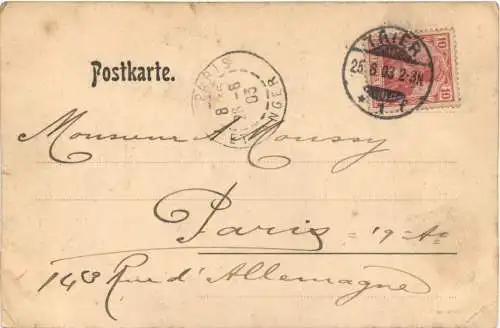 Postkarte.
PARIS
ETRANGER
03
TRIER
25.6.03.2-3N
* 1 f
10 10
Monsieur A. Moussy
Paris 19e Ar
148 Rue d'Allemagne